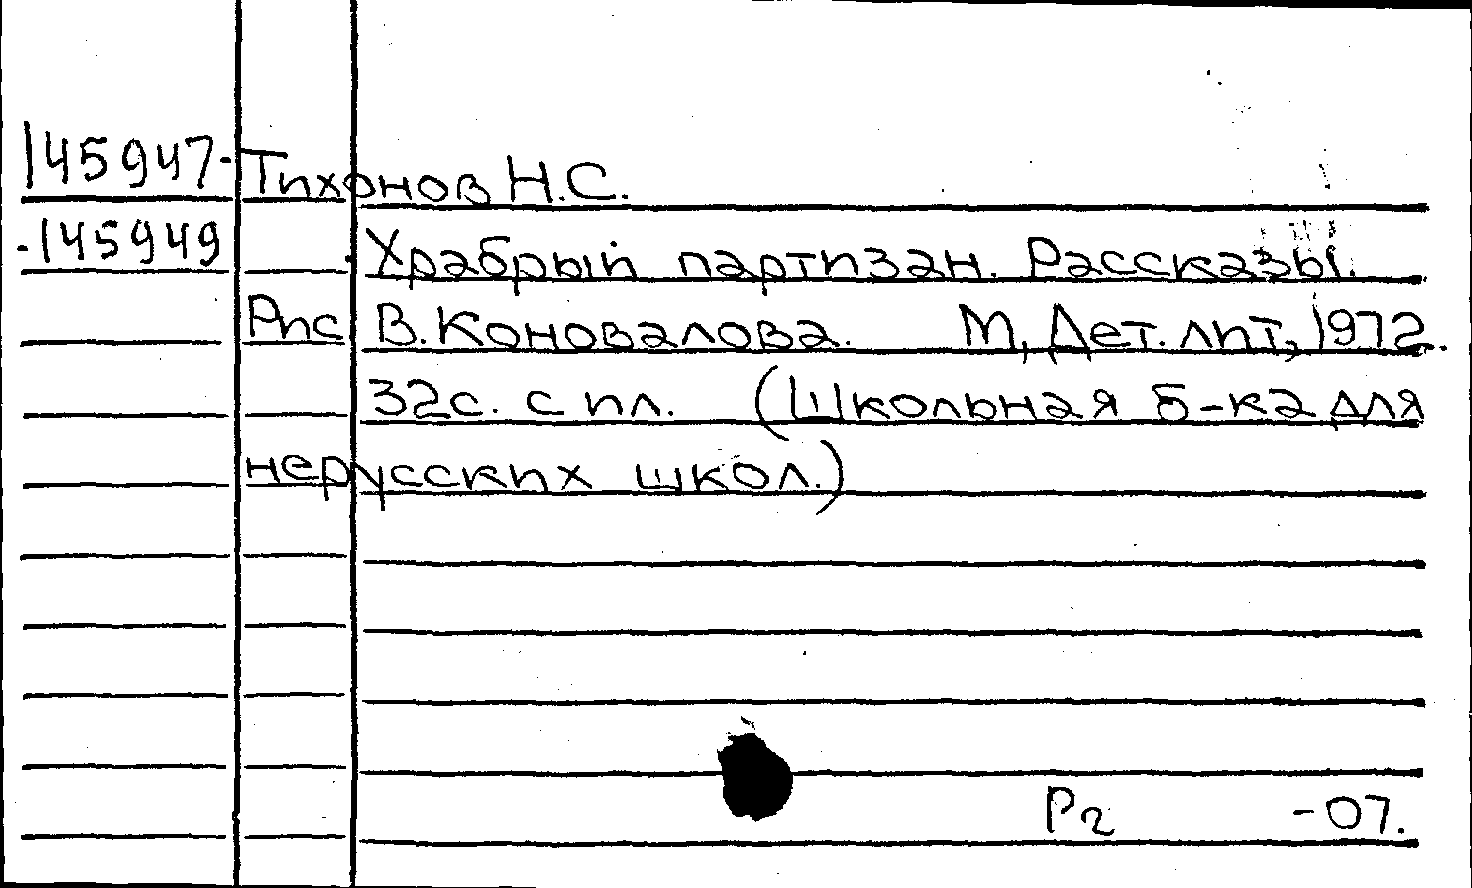 145947- Тихонов Н.С.
-145949 Храбрый партизан. Рассказы.
Рис В.Коновалова. М, Дет. лит, 1972.
32с. с ил. (Школьная б-ка для
нерусских школ.)
Р2 -07.